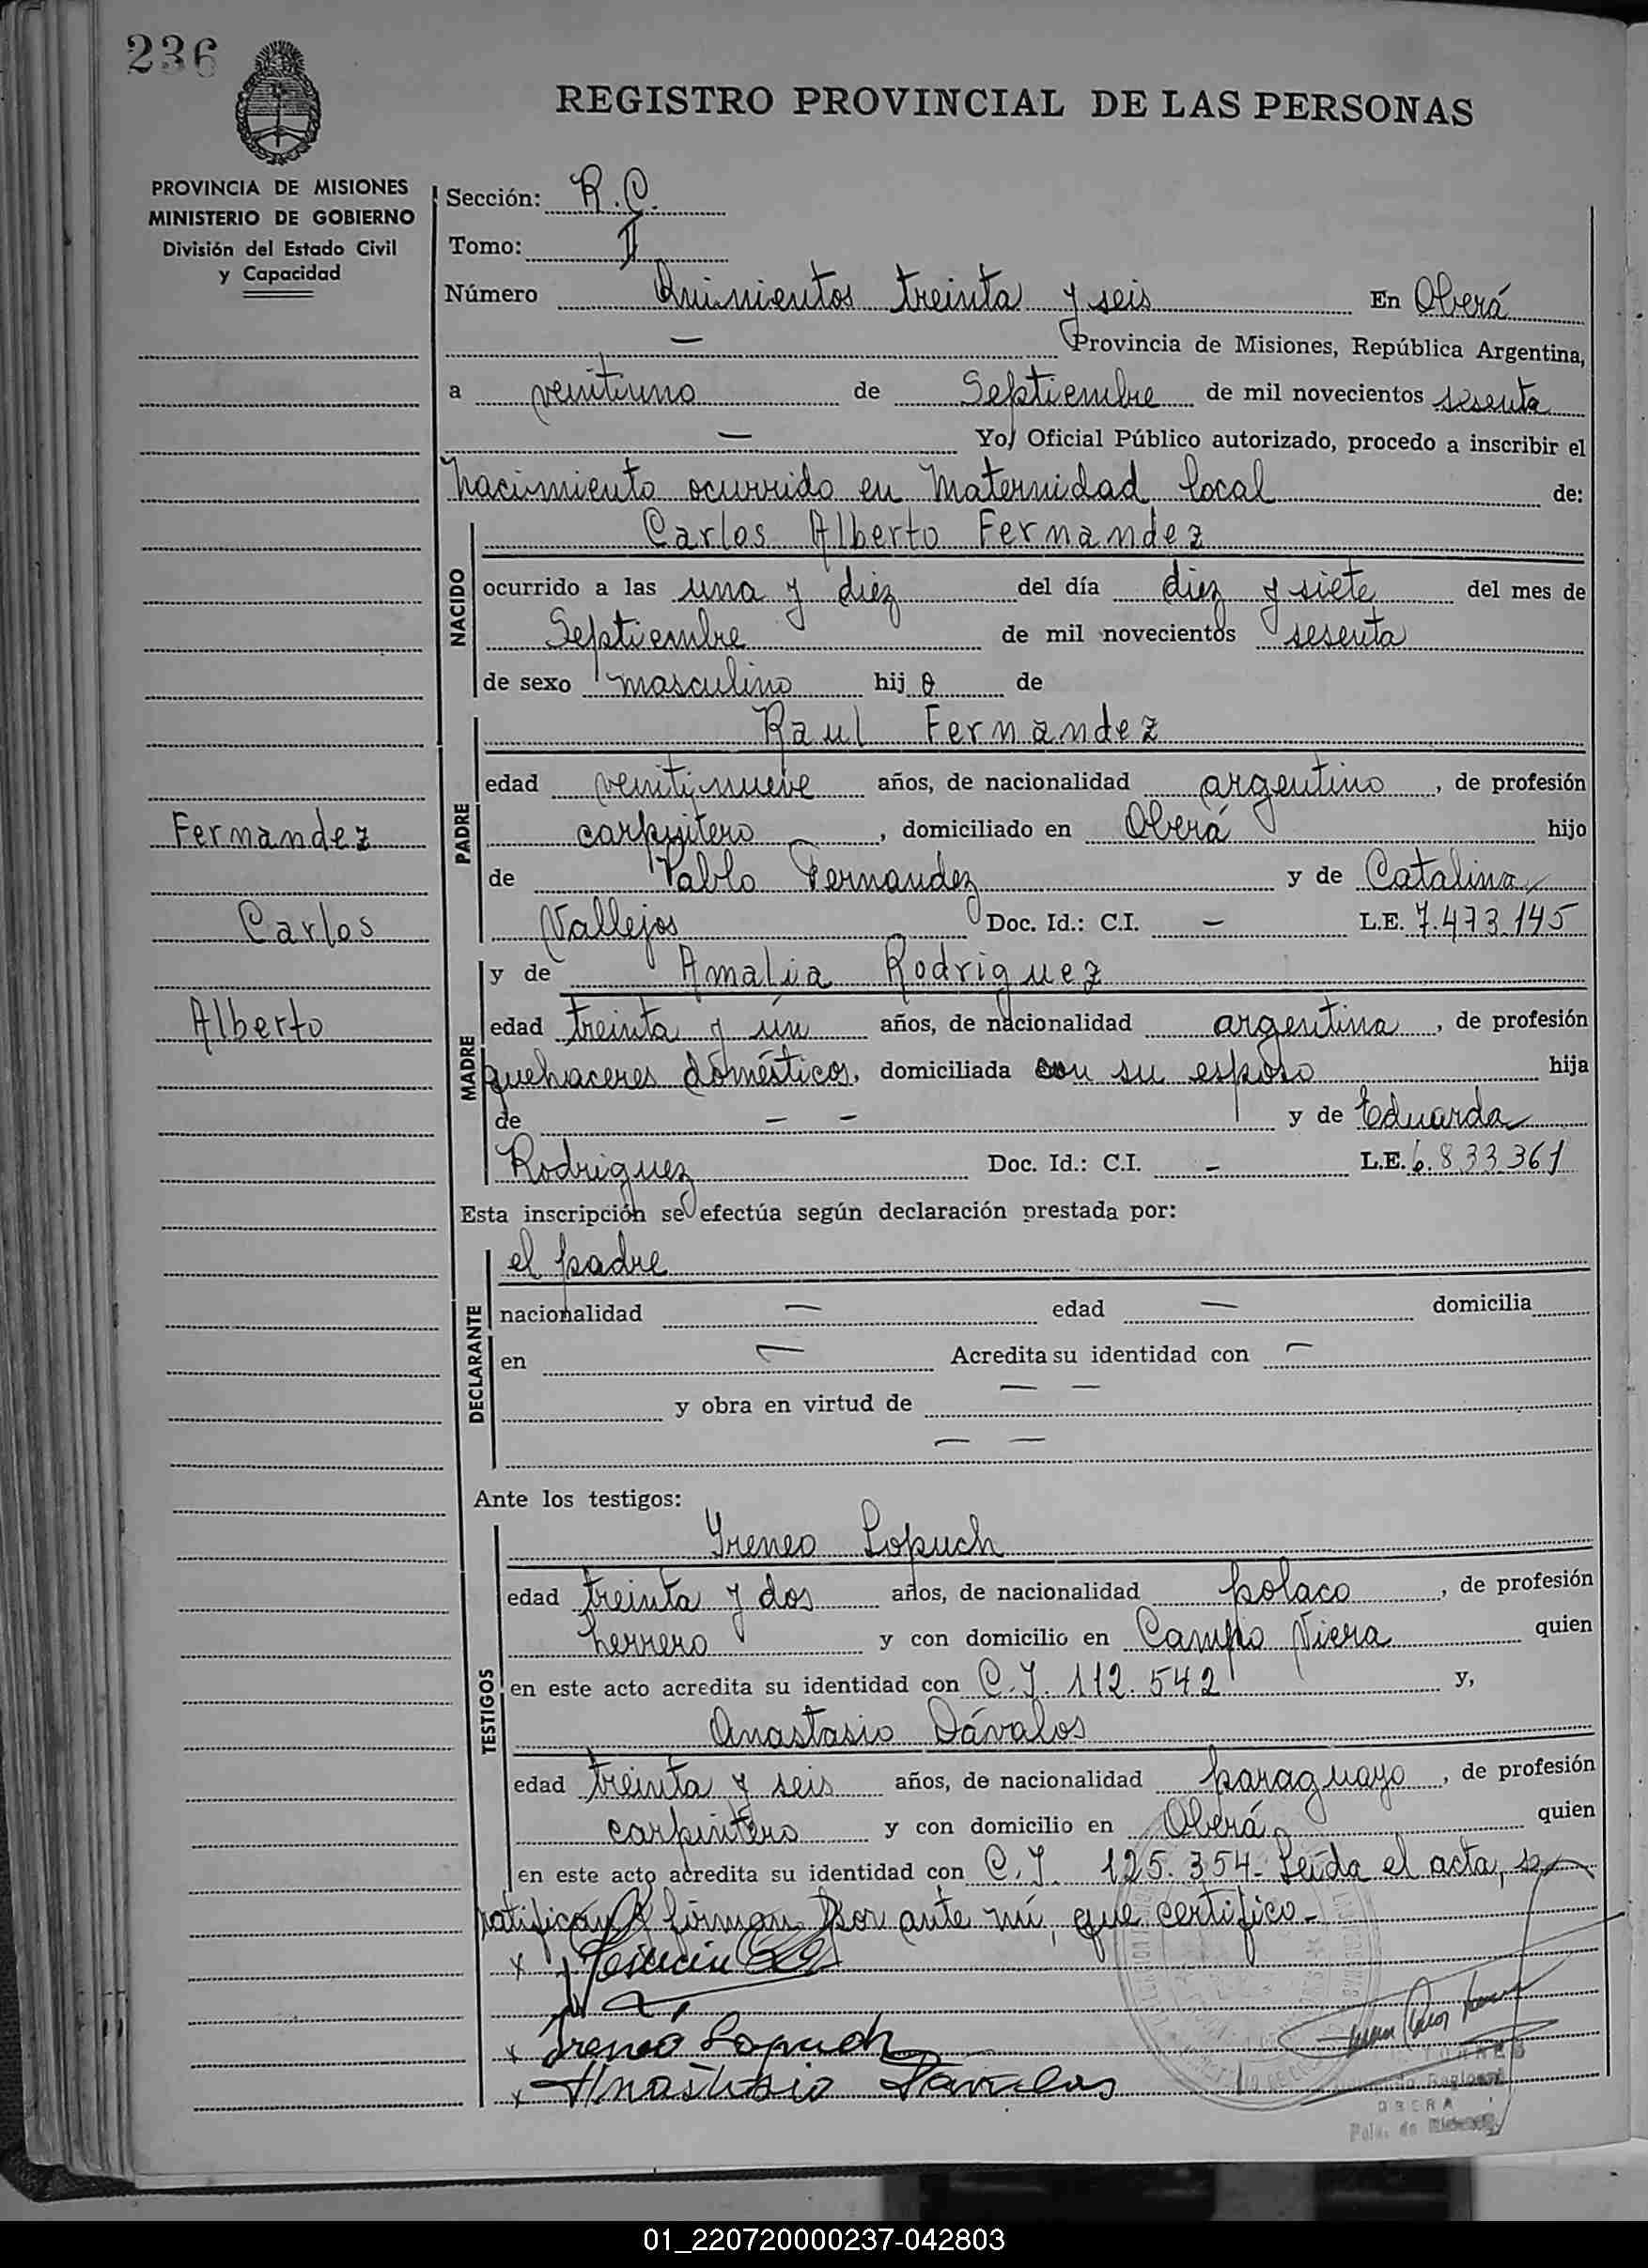 236
REGISTRO PROVINCIAL DE LAS PERSONAS
PROVINCIA DE MISIONES
MINISTERIO DE GOBIERNO
División del Estado Civil
y Capacidad
Sección: R.C.
Tomo: II
Número Quinientos treinta y seis En Oberá
— Provincia de Misiones, República Argentina,
a veintiuno de Septiembre de mil novecientos sesenta
— Yo, Oficial Público autorizado, procedo a inscribir el
nacimiento ocurrido en Maternidad local de:
Carlos Alberto Fernandez
NACIDO
ocurrido a las una y diez del día diez y siete del mes de
Septiembre de mil novecientos sesenta
de sexo masculino hijo de
Raul Fernandez
PADRE
edad veintinueve años, de nacionalidad argentino, de profesión
carpintero, domiciliado en Oberá hijo
de Pablo Fernandez y de Catalina
Vallejos Doc. Id.: C.I. — L.E. 7.473.145
Fernandez
Carlos
Alberto
y de Amalia Rodriguez
MADRE
edad treinta y un años, de nacionalidad argentina, de profesión
quehaceres domésticos, domiciliada con su esposo hija
de — — y de Eduarda
Rodriguez Doc. Id.: C.I. — L.E. 6.833.361
Esta inscripción se efectúa según declaración prestada por:
el padre
DECLARANTE
nacionalidad — edad — domicilia
en — Acredita su identidad con —
y obra en virtud de — —
— —
Ante los testigos:
Ireneo Lopuch
TESTIGOS
edad treinta y dos años, de nacionalidad polaco, de profesión
herrero y con domicilio en Campo Viera quien
en este acto acredita su identidad con C.I. 112.542 y,
Anastasio Dávalos
edad treinta y seis años, de nacionalidad paraguayo, de profesión
carpintero y con domicilio en Oberá quien
en este acto acredita su identidad con C.I. 125.354- Leída el acta, se
ratifican y firman por ante mí, que certifico-
x
x Ireneo Lopuch
x Anastasio Davalos
OBERA
01_220720000237-042803